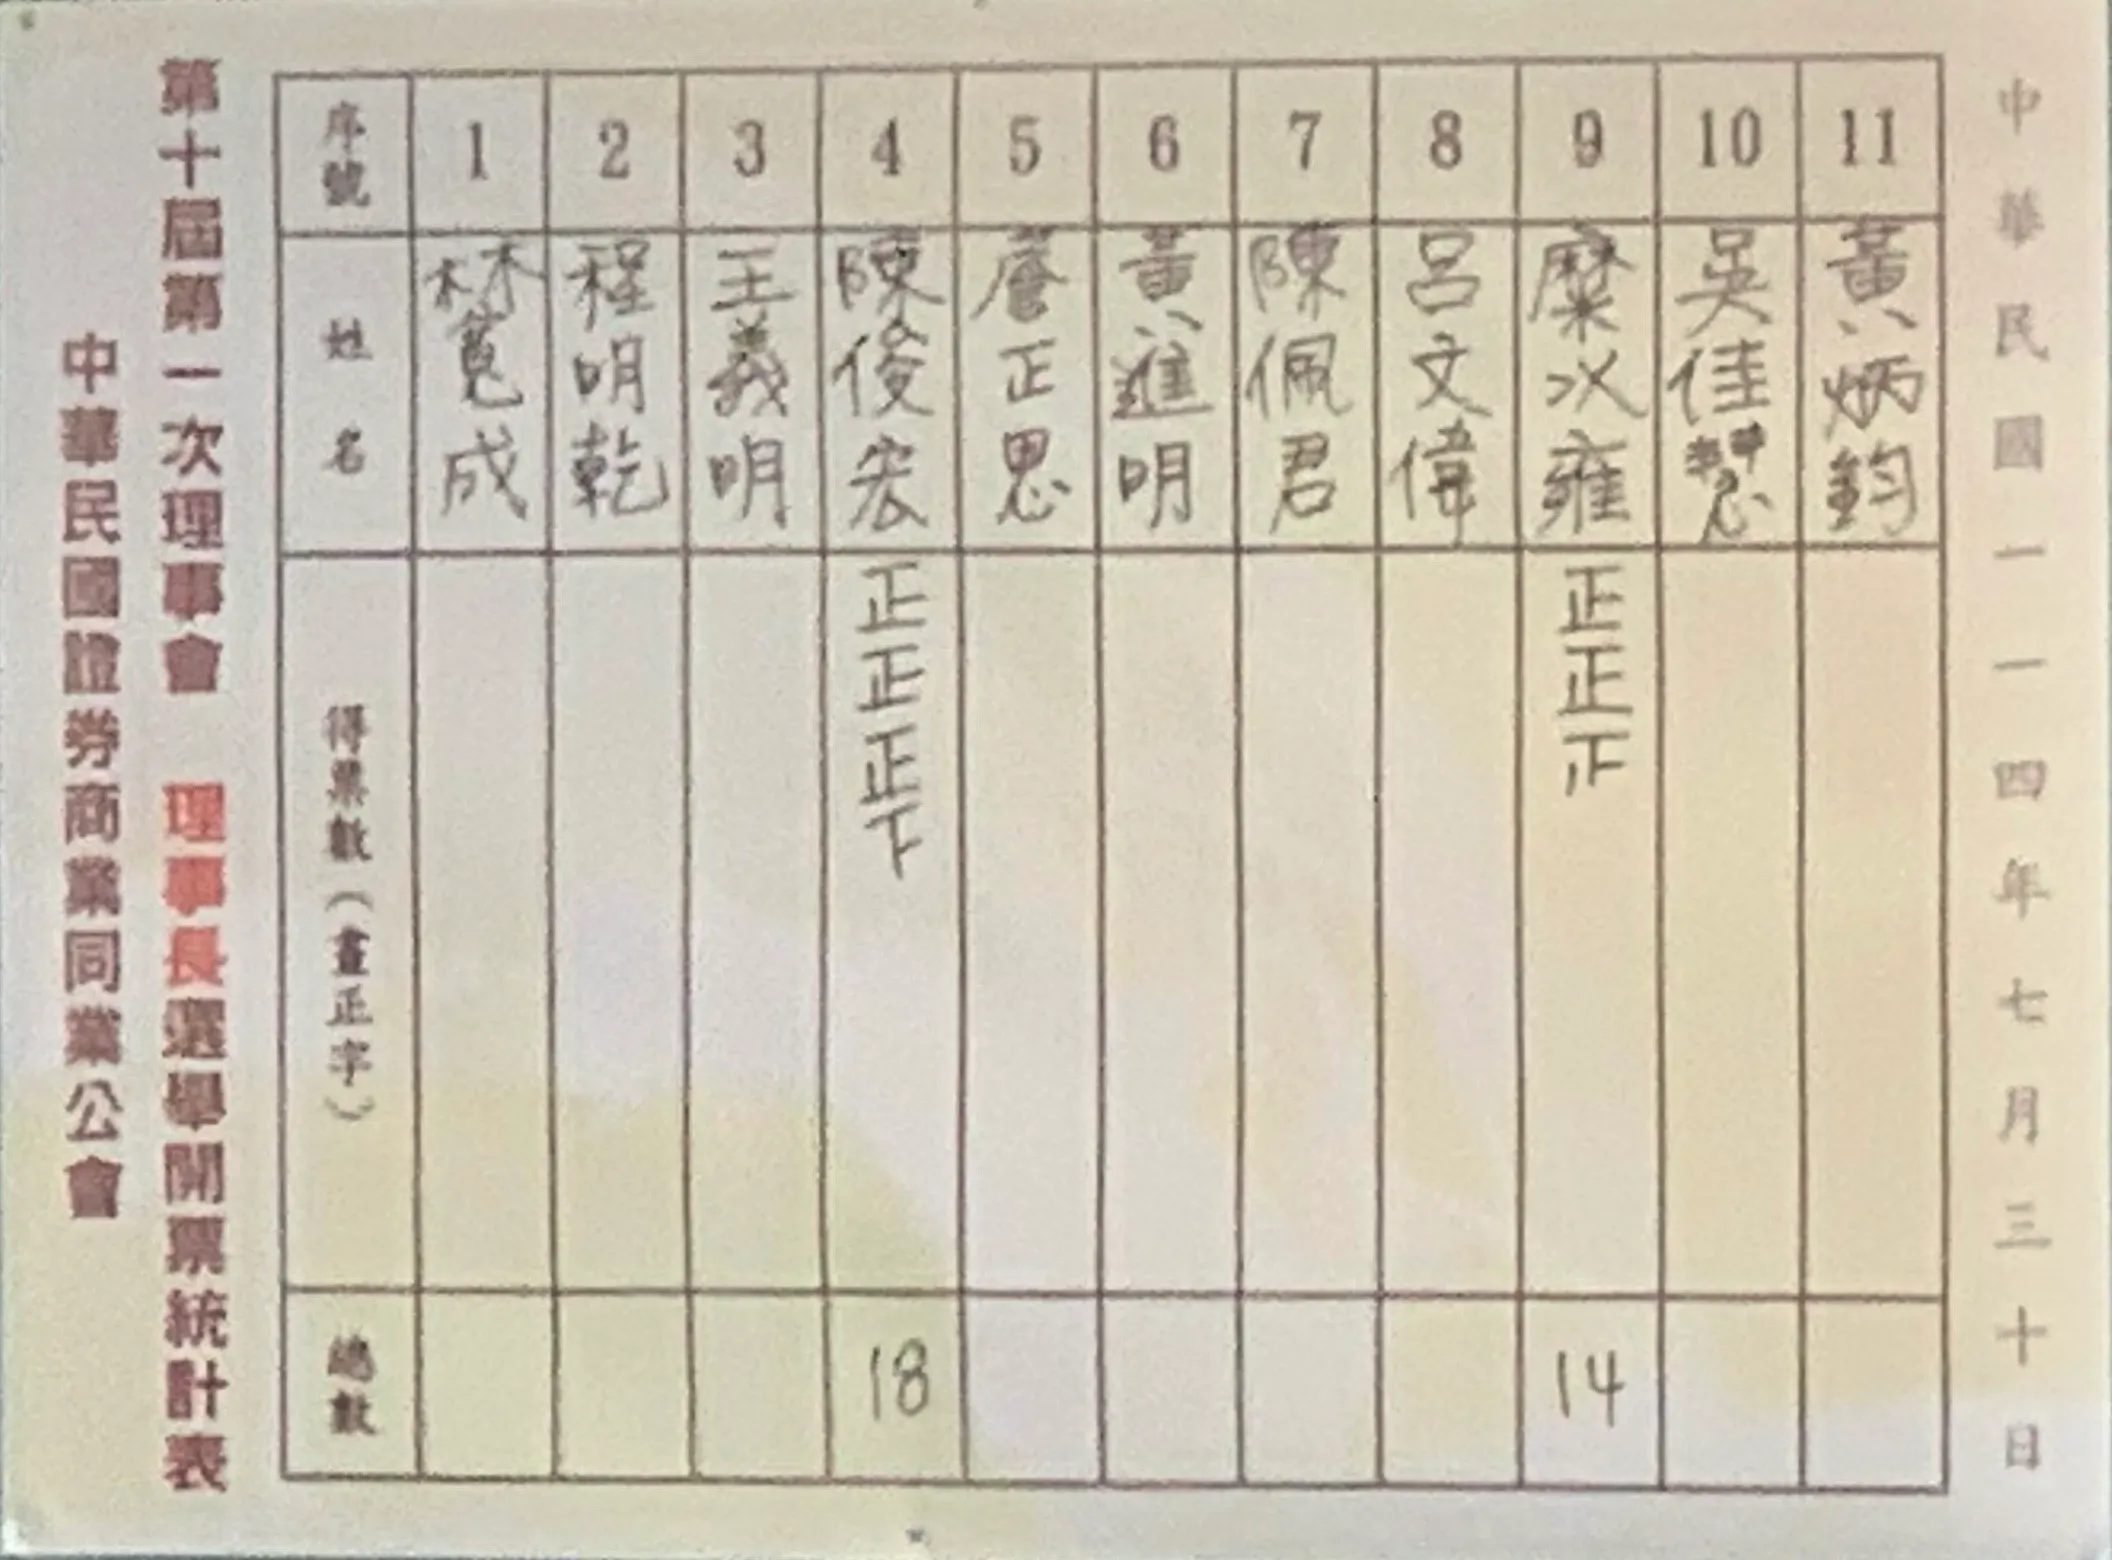 中華民國證券商業同業公會
第十屆第一次理事會 理事長選舉開票統計表
序號 1 2 3 4 5 6 7 8 9 10 11
姓名 林寬成 程明乾 王義明 陳俊宏 詹正恩 黃進明 陳佩君 呂文偉 糜以雍 吳佳慧 黃炳鈞
得票數(畫正字) 正正正下 正正正
總數 18 14
中華民國一一四年七月三十日